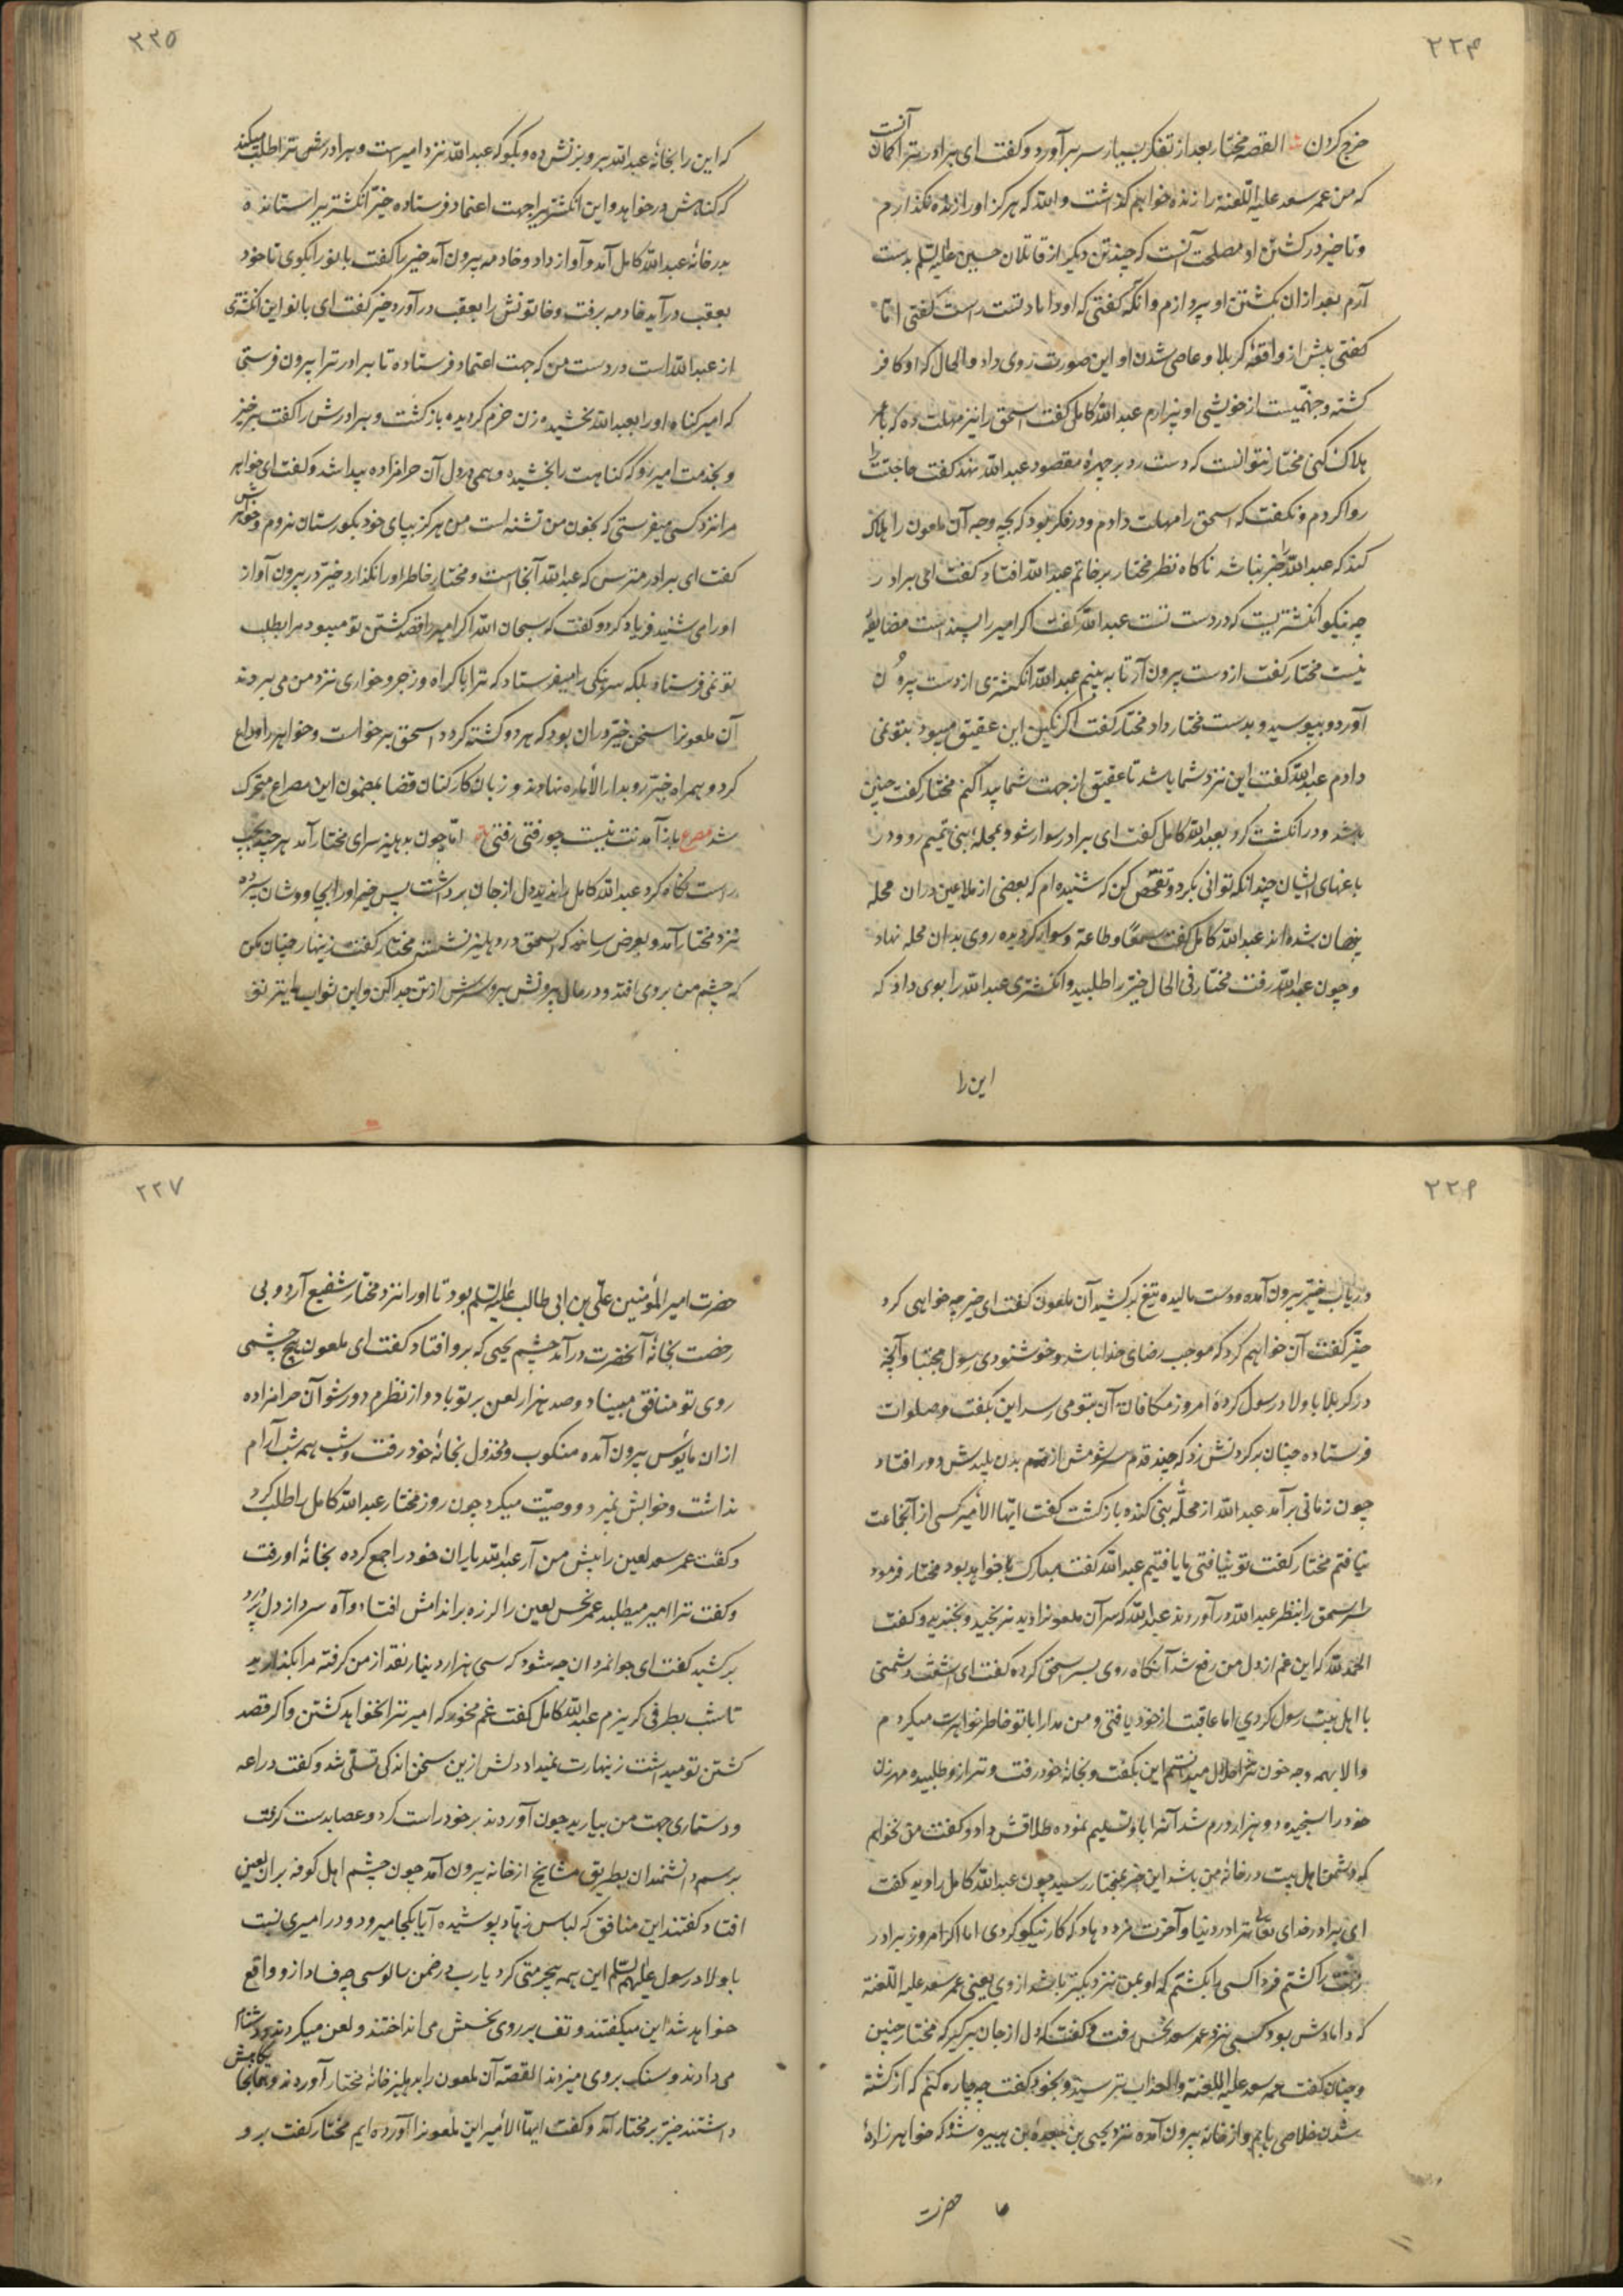 ۲۲۴
خرج کردن القصه مختار بعد از تفکر بسیار سر برآورد و گفت ای برادر ترا گمان آنست
که من عمر سعد علیه اللعنه را زنده خواهم گذاشت والله که هرگز او را زنده نگذارم
و تاخیر در کشتن او مصلحت آنست که چند تن دیگر از قاتلان حسین علیه السلم بدست
آرم بعد از ان بکشتن او پردازم وانکه گفتی که او داماد تست راست گفتی اما
گفتی پیش از واقعهٔ کربلا و عاصی شدن او این صورت روی داد و الحال که او کافر
کشته و جهنمیست از خویشی او بیزارم عبدالله کامل گفت اسحق را نیز مهلت ده که با عمر
هلاک کنی مختار نتوانست که دست رد بر چهرهٔ مقصود عبدالله نهد گفت حاجتت را
روا کردم و نگفت که اسحق را مهلت دادم و در فکر بود که بچه وجه آن ملعون را هلاک
کند که عبدالله را خبر نباشد ناگاه نظر مختار بر خاتم عبدالله افتاد گفت ای برادر
چه نیکو انگشتریست که در دست تست عبدالله گفت اگر امیر را پسند است مضایقه
نیست مختار گفت از دست بیرون آر تا به بینم عبدالله انگشتری از دست بیرون
آورد و ببوسید و بدست مختار داد مختار گفت اگر نگین این عقیق میبود بتو نمی
دادم عبدالله گفت این نزد شما باشد تا عقیق از جهت شما پیدا کنم مختار گفت چنین
باشد و در انگشت کرد بعبدالله کامل گفت ای برادر سوار شو و بمحلهٔ بنی تمیم رو و در
باغهای ایشان چندانکه توانی بگرد و تفحص کن که شنیده ام که بعضی از ملاعین در ان محله
پنهان شده اند عبدالله کامل گفت سمعا و طاعة و سوار گردیده روی بدان محله نهاد
و چون عبدالله رفت مختار فی الحال خیر را طلبید و انگشتری عبدالله را بوی داد که
این را
۲۲۵
که این را بخانهٔ عبدالله بر و بزنش ده و بگو که عبدالله نزد امیر است و برادرش ترا طلب میکند
که کناهش درخواهد و این انگشتر را جهت اعتماد فرستاده خیر انگشتر را ستانده
بدرخانهٔ عبدالله کامل آمد و آواز داد و خادمه بیرون آمد خیر را گفت بانو را بگوی تا خود
بعقب در آید خادمه برفت و خاتونش را بعقب در آورد خیر گفت ای بانو این انگشتری
از عبدالله است در دست من که جهت اعتماد فرستاده تا برادر ترا بیرون فرستی
که امیر گناه او را بعبدالله بخشیده زن خرم گردیده بازگشت و برادرش را گفت برخیز
و بخدمت امیر رو که گناهت را بخشیده وهمی در دل آن حرامزاده پیدا شد و گفت ای خواهر
مرا نزد کسی میفرستی که بخون من تشنه است من هرگز بپای خود بگورستان نروم و خواهرش
گفت ای برادر مترس که عبدالله آنجا است و مختار خاطر او را نگذارد خیر در بیرون آواز
او را می شنید فریاد کرد و گفت که سبحان الله اگر امیر را قصد کشتن تو میبود مرا بطلب
تو نمی فرستاد بلکه سرهنگی را میفرستاد که ترا با کراه و زجر و خواری نزد من می بردند
آن ملعون را سخن خیر در ان بود که هر دو کشته گردد اسحق برخواست و خواهر را وداع
کرد و بهمراه خیر رو بدار الاماره نهادند و زبان کارکنان قضا بمضمون این مصراع متحرک
شد مصرع باز آمدنت نیست چو رفتی رفتی اما چون بدهلیز سرای مختار آمد هر چند بچپ
راست نگاه کرد عبدالله کامل را ندید دل از جان برداشت پس خیر او را بجاووشان سپرده
نزد مختار آمد و بعرض رسانید که اسحق در دهلیز نشسته مختار گفت زینهار چنان مکن
که چشم من بر وی افتد و در حال بیرونش ببر و سرش از تن جدا کن و این ثواب
۲۲۶
در زمان خیر بیرون آمده و دست مالیده تیغ برکشید آن ملعون گفت ای خیر چه خواهی کرد
خیر گفت آن خواهم کرد که موجب رضای خدا باشد و خوشنودی رسول مجتبا و آنچه
در کربلا با اولاد رسول کردهٔ امروز مکافات آن بتو می رسد این بگفت و صلوات
فرستاده چنان بر گردنش زد که چند قدم سر شومش از بدن پلیدش دور افتاد
چون زمانی برآمد عبدالله از محلهٔ بنی کنده بازگشت گفت ایها الامیر کسی از آنجماعت
نیافتم مختار گفت تو نیافتی ما یافتیم عبدالله گفت مبارک خواهد بود مختار فرمود
سر اسحق را بنظر عبدالله در آوردند عبدالله که سر آن ملعون را دید نرنجید و بخندید و گفت
الحمد لله که این غم از دل من رفع شد آنگاه روی بسر اسحق کرده گفت ای دشمنی
با اهل بیت رسول کردی اما عاقبت از خود یافتی و من مدارا با تو خاطر خواهرت میکردم
والا بهمه وجه خون ترا حلال میدانستم این بگفت و بخانهٔ خود رفت و ترازو طلبیده مهر زن
خود را سنجیده دو هزار درم شد آنرا باو تسلیم نموده طلاقش داد و گفت من نخواهم
که دشمن اهل بیت در خانهٔ من باشد این خبر بمختار رسید چون عبدالله کامل را دید گفت
ای برادر خدای تعالی ترا در دنیا و آخرت مزد دهاد که کار نیکو کردی اما اگر امروز برادر
زنت را کشتم فردا کسی را بکشتم که او بمن نزدیکتر باشد از وی یعنی عمر سعد علیه اللعنه
که دامادش بود کسی نزد عمر سعد نحس رفت و گفت که دل از جان برگیر که مختار چنین
و چنان گفت عمر سعد علیه اللعنه والعذاب بترسید و بخود گفت چه چاره کنم که از کشته
شدن خلاصی یابم و از خانه بیرون آمده نزد یحیی بن جعدة بن هبیره شد که خواهرزادهٔ
حضرت
۲۲۷
حضرت امیر المؤمنین علی بن ابی طالب علیه السلم بود تا او را نزد مختار شفیع آرد و بی
رخصت بخانهٔ آنحضرت در آمد چشم یحیی که برو افتاد گفت ای ملعون هیچ چشمی
روی تو منافق مبیناد و صد هزار لعن بر تو باد و از نظرم دور شو آن حرامزاده
از ان مایوس بیرون آمده منکوب و مخذول بخانهٔ خود رفت و شب همه شب آرام
نداشت و خوابش نمی برد و وصیت میکرد چون روز مختار عبدالله کامل را طلب کرد
و گفت عمر سعد لعین را پیش من آر عبدالله یاران خود را جمع کرده بخانهٔ او رفت
و گفت ترا امیر میطلبد عمر نحس لعین را لرزه بر اندامش افتاد و آه سرد از دل پر درد
برکشید گفت ای جوانمردان چه شود که سی هزار دینار نقد از من گرفته مرا بگذارید
تا شب بطرفی گریزم عبدالله کامل گفت غم مخور که امیر ترا نخواهد کشتن و اگر قصد
کشتن تو میداشت زینهارت نمیداد دلش ازین سخن اندکی تسلی شد و گفت دراعه
و دستاری جهت من بیارید چون آوردند بر خود راست کرد و عصا بدست گرفت
برسم دانشمندان بطریق مشایخ از خانه بیرون آمد چون چشم اهل کوفه بر ان لعین
افتاد گفتند این منافق که لباس زهاد پوشیده آیا بکجا میرود و در امیری نسبت
با اولاد رسول علیهم السلم این همه بیحرمتی کرد یارب در ضمن سالوسی چه فساد ازو واقع
خواهد شد این میگفتند و تف بر روی نحسش می انداختند و لعن میکردند و دشنام
می دادند و سنگ بروی میزدند القصه آن ملعون را بدهلیز خانهٔ مختار آوردند و بجا نگاهش
داشتند خیر بر مختار آمد و گفت ایها الامیر این ملعون را آورده ایم مختار گفت برو